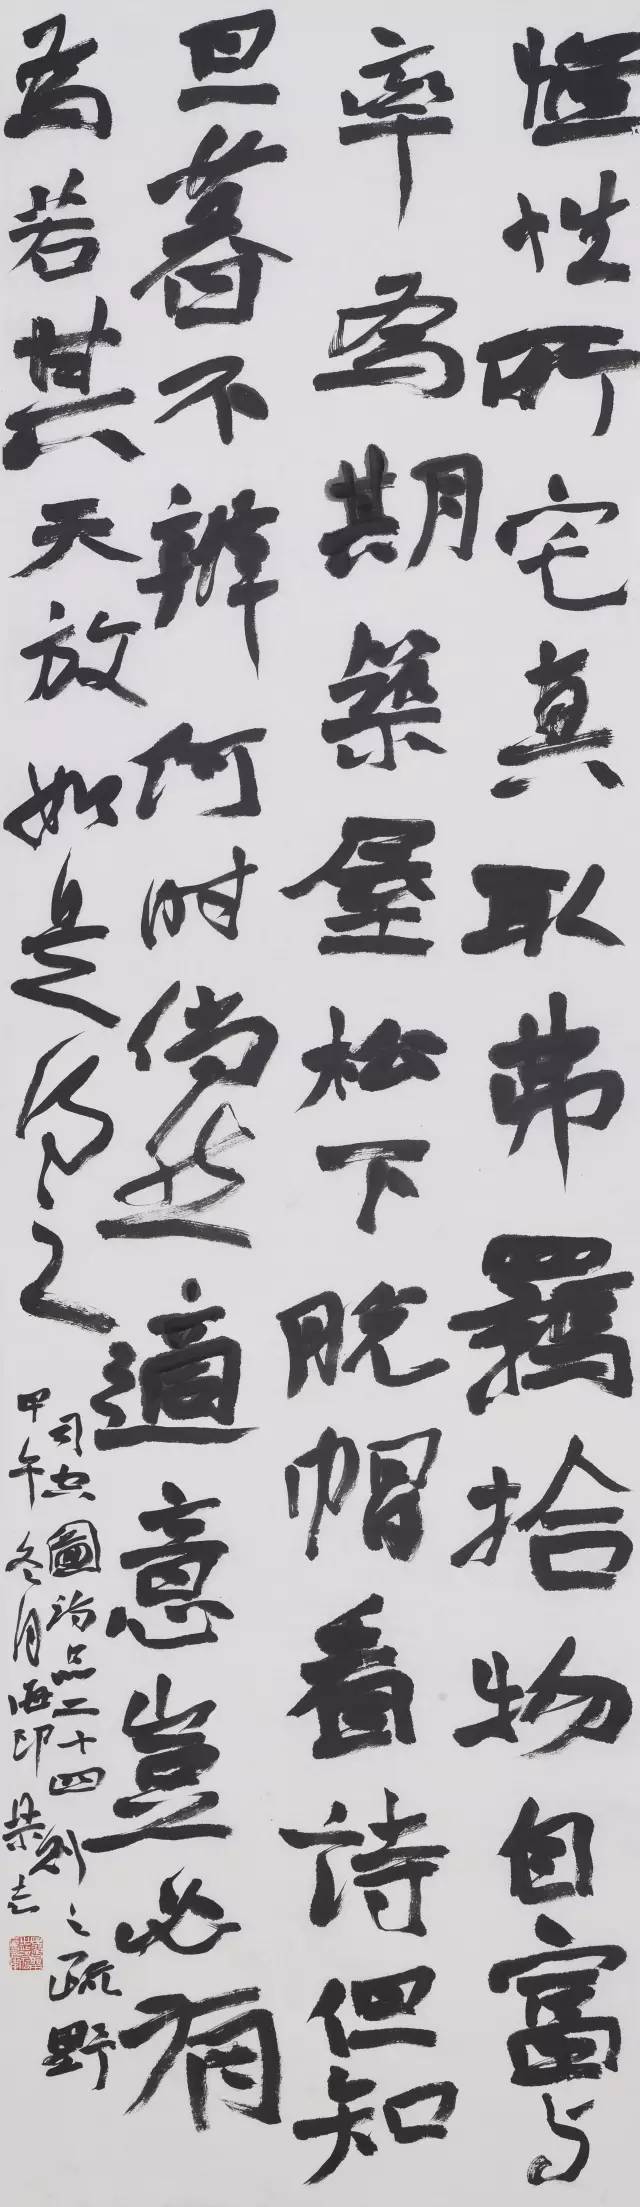 惟性所宅真取弗羈拾物自富与
率為期築屋松下脱帽看詩但知
旦暮不辨何时倘然適意豈必有
為若其天放如是得之
司空圖诗品二十四则之疏野
甲午冬月海印